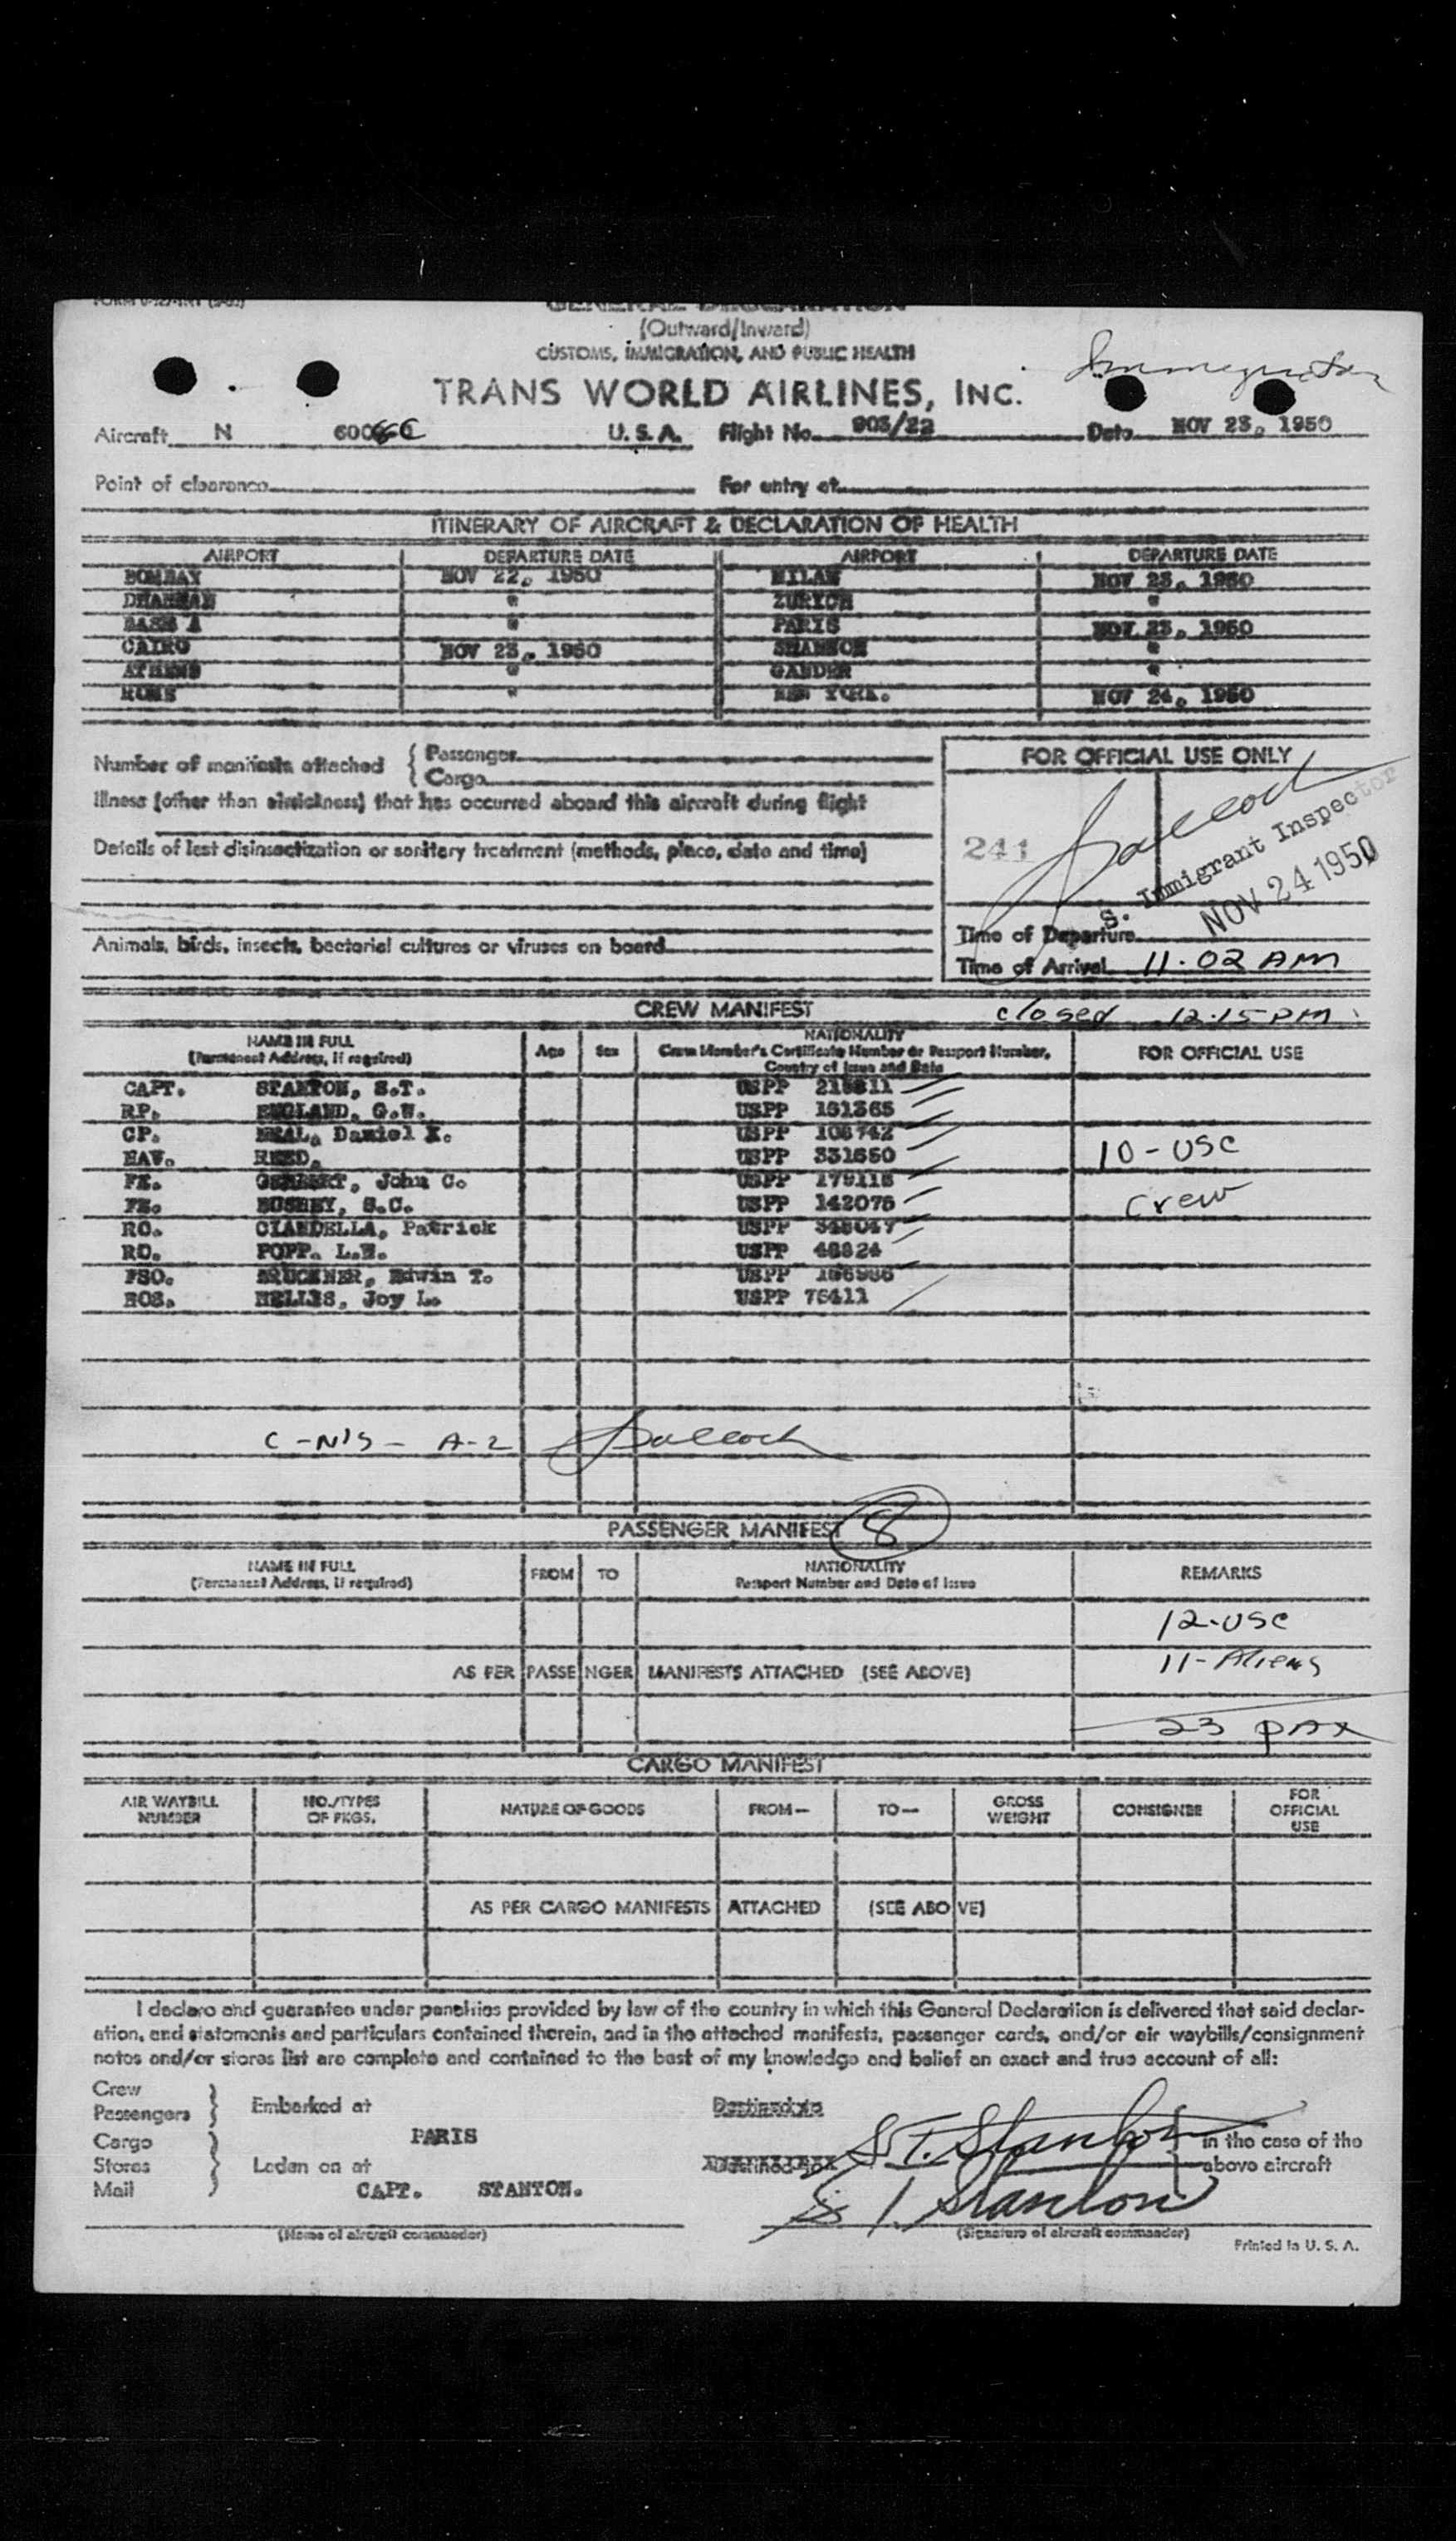 (Outward/Inward)
CUSTOMS, IMMIGRATION, AND PUBLIC HEALTH
Immigration
TRANS WORLD AIRLINES, INC.
Aircraft N U. S. A. Flight No. 903/22 Date NOV 23, 1950
Point of clearance For entry at
ITINERARY OF AIRCRAFT & DECLARATION OF HEALTH
AIRPORT DEPARTURE DATE AIRPORT DEPARTURE DATE
BOMBAY NOV 22, 1950 MILAN NOV 23, 1950
DHAHRAN " ZURICH "
" PARIS NOV 23, 1950
CAIRO NOV 23, 1950 SHANNON "
ATHENS " GANDER "
ROME " NEW YORK. NOV 24, 1950
Number of manifests attached { Passenger
Cargo
Illness (other than airsickness) that has occurred aboard this aircraft during flight
Details of last disinsectization or sanitary treatment (methods, place, date and time)
Animals, birds, insects, bacterial cultures or viruses on board
FOR OFFICIAL USE ONLY
241
S. Immigrant Inspector
NOV 24 1950
Time of Departure
Time of Arrival 11.02 AM
CREW MANIFEST closed 12.15 PM
NAME IN FULL
(Permanent Address, if required) Age Sex NATIONALITY
Crew Member's Certificate Number or Passport Number,
Country of Issue and Date FOR OFFICIAL USE
CAPT. STANTON, S.T. USPP
RP. ENGLAND, G.W. USPP
CP. NEAL, Daniel USPP
NAV. REED. USPP 331650
FE. John C. USPP
FE. S.C. USPP 142075
RO. CIANDELLA, Patrick USPP
RO. POPP. USPP
FSO. BRUCKNER, Edwin T. USPP
HOS. Joy L. USPP 76411
10-USC
Crew
C-N's- A-2
PASSENGER MANIFEST 8
NAME IN FULL
(Permanent Address, if required) FROM TO NATIONALITY
Passport Number and Date of Issue REMARKS
12-USC
AS PER PASSENGER MANIFESTS ATTACHED (SEE ABOVE) 11-Aliens
23 PAX
CARGO MANIFEST
AIR WAYBILL NUMBER NO./TYPES OF PKGS. NATURE OF GOODS FROM— TO— GROSS WEIGHT CONSIGNEE FOR OFFICIAL USE
AS PER CARGO MANIFESTS ATTACHED (SEE ABOVE)
I declare and guarantee under penalties provided by law of the country in which this General Declaration is delivered that said declar-
ation, and statements and particulars contained therein, and in the attached manifests, passenger cards, and/or air waybills/consignment
notes and/or stores list are complete and contained to the best of my knowledge and belief an exact and true account of all:
Crew
Passengers Embarked at
Cargo PARIS
Stores Laden on at
Mail CAPT. STANTON.
(Name of aircraft commander)
Destined to
S.T. Stanton
in the case of the
above aircraft
S T. Stanton
(Signature of aircraft commander)
Printed in U. S. A.